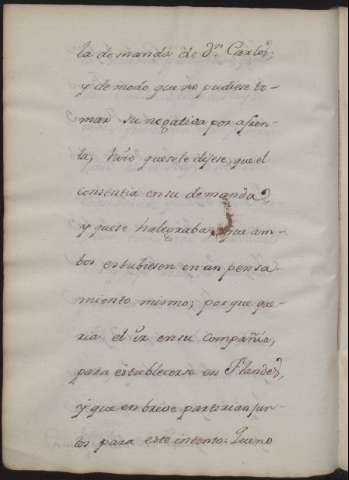 la demanda de Dn. Carlos,
y de modo que no pudiese to-
mar su negativa por afren-
ta, hizo que se le dijese, que el
consentia en su demanda,
y que se holgaba, que am-
bos estubiesen en un pensa-
miento mismo; porque que-
ria el ir en su compañia,
para establecerse en Flandes,
y que en breve partirian jun-
tos para este intento. Bueno